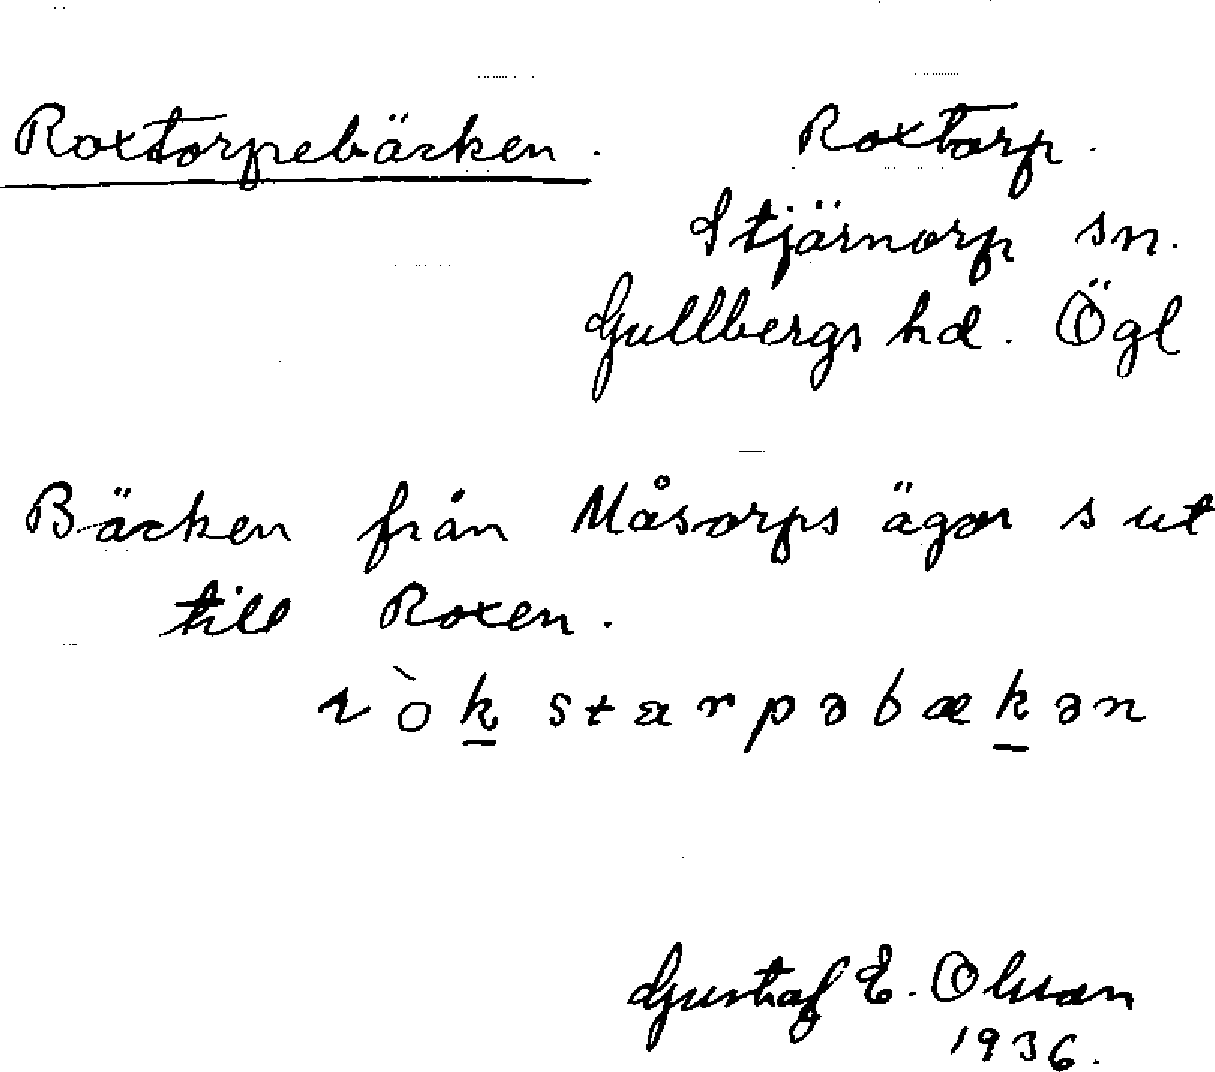 Roxtorpebäcken. Roxtorp.
Stjärnorp sn.
Gullbergs hd. Ögl
Bäcken från Måsorps ägor s ut
till Roxen.
ròk̲starpəbæk̲ən
Gustaf E. Olsson
1936.